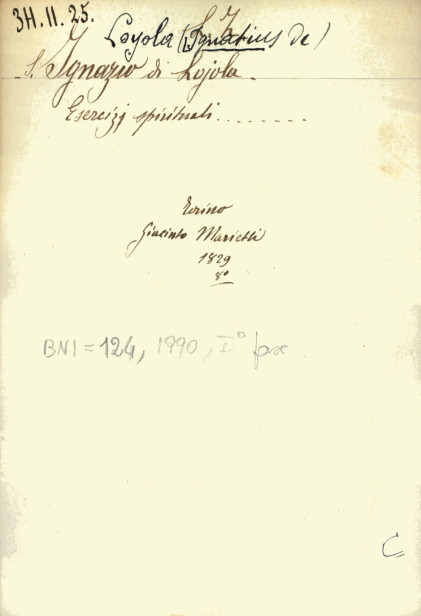 34.11.25.
Loyola (Ignatius de)
S. Ignazio di Lojola.
Esercizj spirituali........
Torino
Giacinto Marietti
1829
8º
BNI = 124, 1990, Iº fax
C